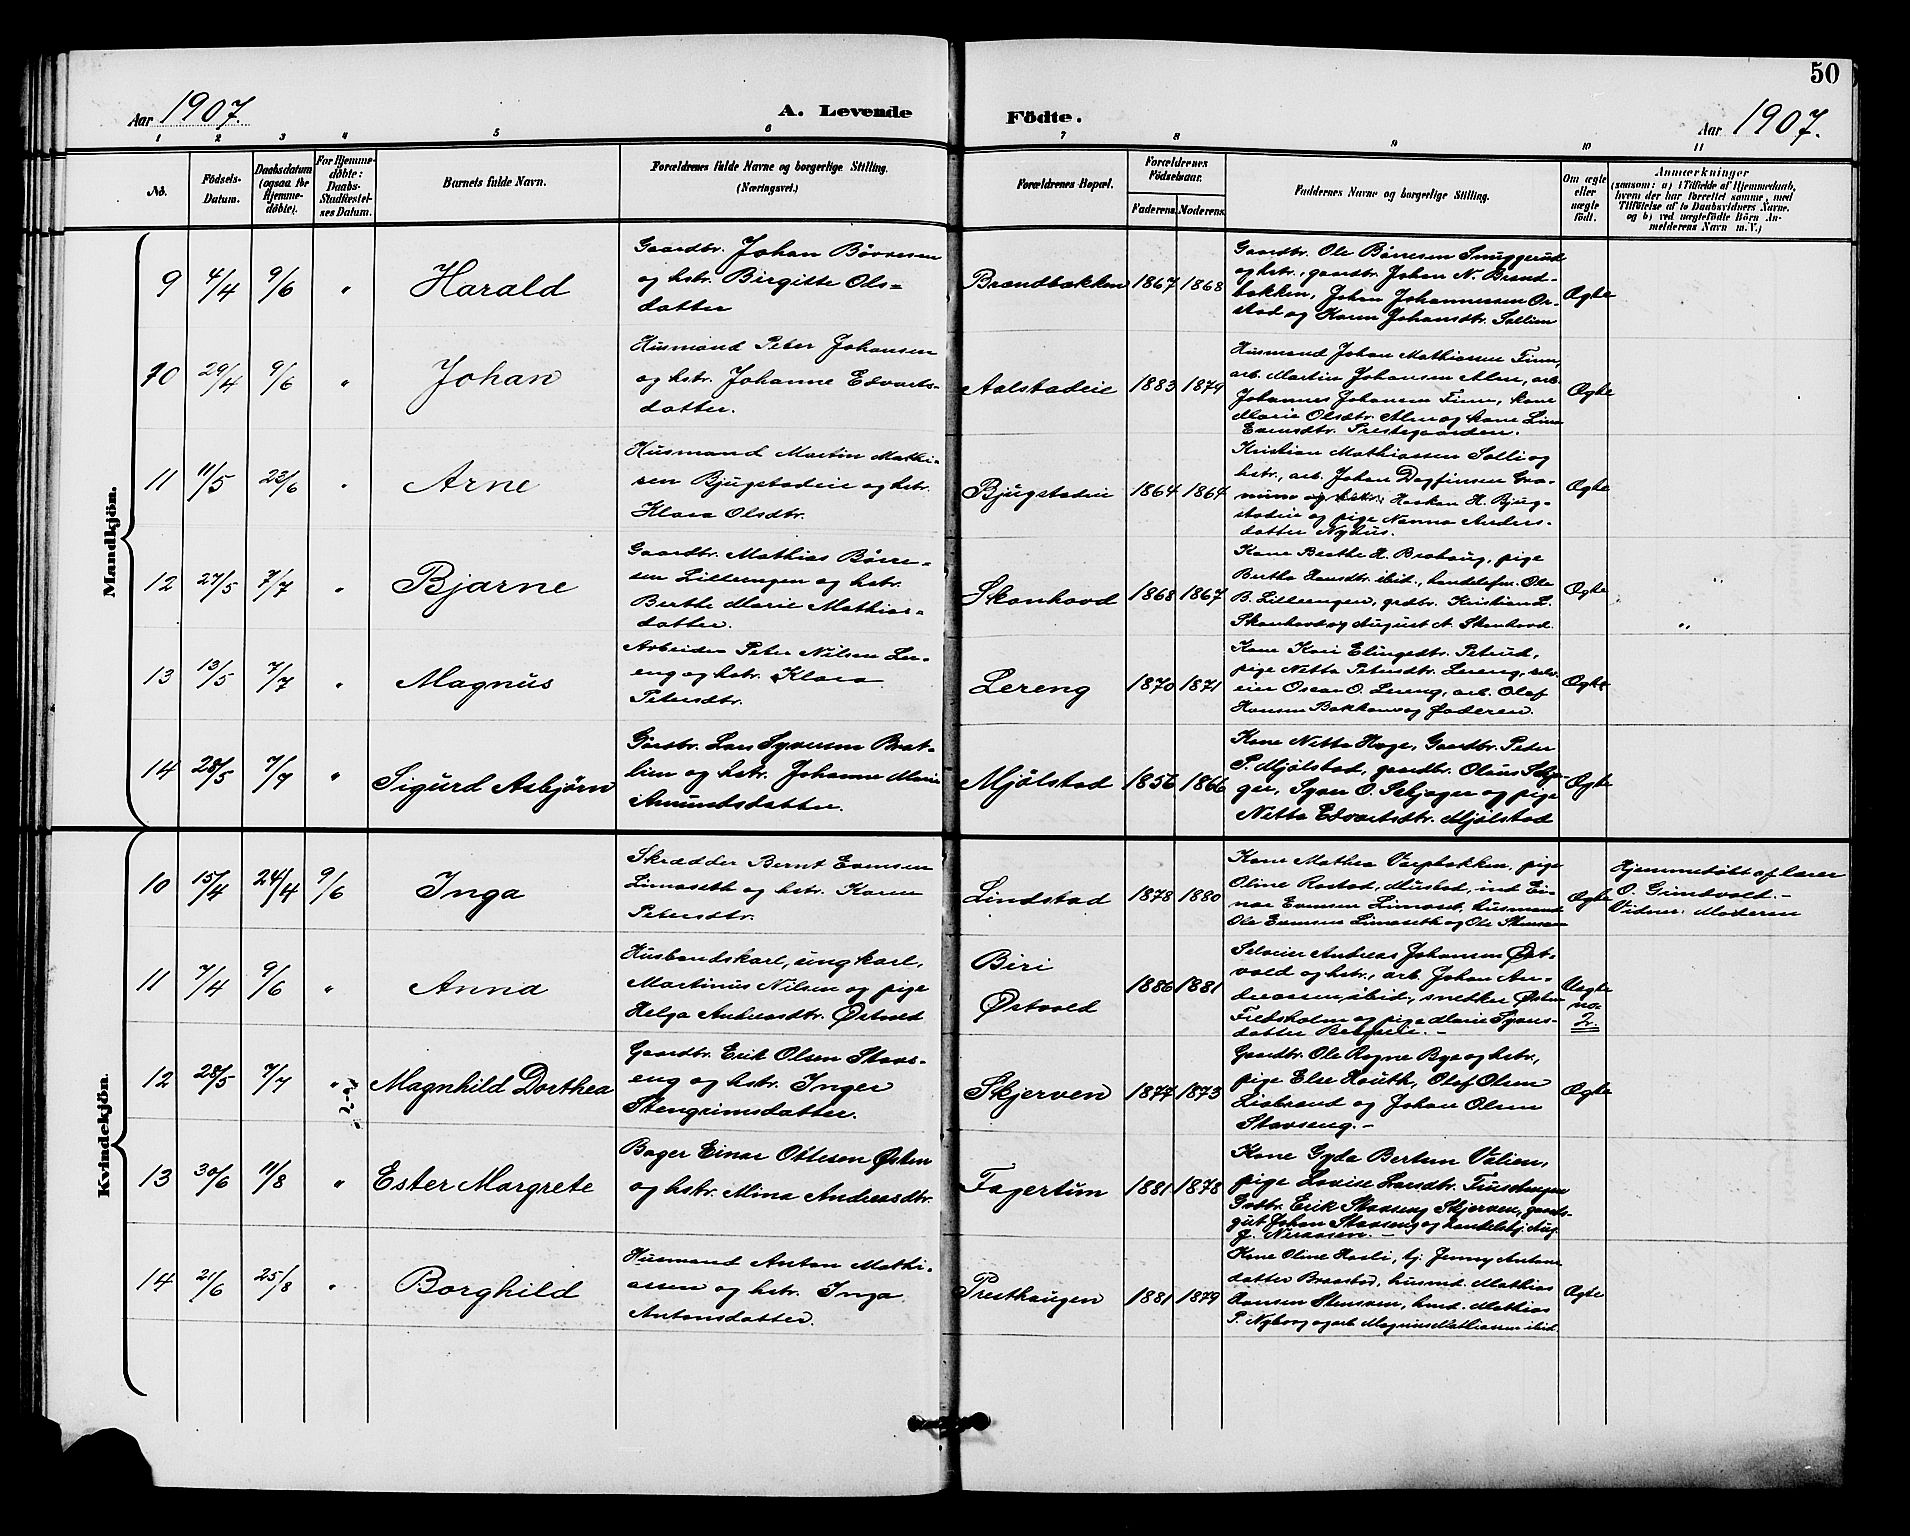 50
Aar 1907.
A. Levende
Födte.
Aar 1907.
1 2 3 4 5 6 7 8 9 10 11
No.
Födsels-
Datum.
Daabsdatum
(ogsaa for
Hjemme-
døbte).
For Hjemme-
døbte:
Daabs-
Stadfæstel-
ses Datum.
Barnets fulde Navn.
Forældrenes fulde Navne og borgerlige Stilling.
(Næringsvei.)
Forældrenes Bopæl.
Forældrenes
Födselsaar.
Faderens. Moderens.
Faddernes Navne og borgerlige Stilling.
Om ægte
eller
uægte
födt.
Anmærkninger
(saasom: a) i Tilfælde af Hjemmedaab,
hvem der har forrettet samme, med
Tilføielse af to Daabsvidners Navne,
og b) ved uægtefödte Börn An-
melderens Navn m. V.)
Mandkjön.
9 4/4 9/6 " Harald
Gaardbr. Johan Børresen
og hstr. Birgitte Ols-
datter
Brændbakken 1867 1868
Gaardbr. Ole Børresen Snuggerud
og hstr., gaardbr. Johan N. Brænd-
bakken, Johan Johannessen
og Karen Johansdtr. Sollien
Ægte
10 29/4 9/6 " Johan
Husmand Peter Johansen
og hstr. Johanne Edvarts-
datter.
Aalstadeie 1883 1879
Husmand Johan Mathiassen Finn,
arb. Martin Johansen Alm, arb.
Johannes Johansen Finn, kone
Marie Olsdtr. Alm og kone Lina
Evensdtr. Prestegaarden.
Ægte
11 11/5 23/6 " Arne
Husmand Martin Mathi-
sen Bjugstadeie og hstr.
Klara Olsdtr.
Bjugstadeie 1864 1864
Kristian Mathiassen Solli og
hstr., arb. Johan Dagfinsen
og hstr., Haakon H. Bjug-
stadeie og pige Nanna Anders-
datter Nyhus.
Ægte
12 27/5 7/7 " Bjarne
Gaardbr. Mathias Børre-
sen Lilleengen og hstr.
Berthe Marie Mathias-
datter.
Skonhovd 1868 1867
Kone Berthe H. Brahaug, pige
Bertha Hansdtr. ibid., handelsfm. Ole
B. Lilleengen, grdbr. Kristian L.
Skonhovd og August A. Skonhovd.
Ægte
13 13/5 7/7 " Magnus
Arbeider Peter Nilsen Ler-
eng og hstr. Klara
Petersdtr.
Lereng 1870 1871
Kone Kari Elingsdtr. Petrud,
pige Netta Petersdtr. Lereng, selv-
eier Oscar O. Lereng, arb. Olaf
Hansen Bakken og faderen.
Ægte
14 28/5 7/7 " Sigurd Asbjørn
Gaardbr. Lars Syversen Brat-
lien og hstr. Johanne Marie
Amundsdatter.
Mjølstad 1856 1866
Kone Netta Hage, Gaardbr. Peter
P. Mjølstad, gaardbr. Olaus Skjæ-
ger, Syver O. Skjæger og pige
Netta Edvartsdtr. Mjølstad
Ægte
Kvindekjön.
10 15/4 24/4 9/6 Inga
Skrædder Bernt Evensen
Limoseth og hstr. Karen
Petersdtr.
Lindstad 1878 1880
Kone Mathea Varpbakken, pige
Oline Rostad, Mustad, ind. Ei-
nar Evensen Limoset, husmand
Ole Evensen Limoseth og Ole
Ægte
Hjemmedøbt af lærer
O. Grindvold.-
Vidner: Moderen
11 7/4 9/6 " Anna
Husbondskarl, ungkarl,
Martinus Nilsen og pige
Helga Andreasdtr. Østvold
Biri
Østvold
1886 1881
Selveier Andreas Johansen Øst-
vold og hstr., arb. Johan An-
dreassen, ibid., snedker Østen
Fredsholm og pige Marie Syvers-
datter
Uægte
no.
2.
12 28/5 7/7 " Magnhild Dorthea
Gaardbr. Erik Olsen Stavs-
eng og hstr. Inger
Stengrimsdatter.
Skjerven 1877 1873
Gaardbr. Ole Rogne Bye og hstr.,
pige Else Houth, Olaf Olsen
Liabrand og Johan Olsen
Stavseng.-
Ægte
13 30/6 11/8 " Ester Margrete
Bager Einar Ottesen Østen
og hstr. Mina Andreasdtr.
Fagertun 1881 1878
Kone Gyda Bertum Valien,
pige Lovise Larsdtr.
Grdbr. Erik Stavseng Skjerven, gaards-
gut Johan Stavseng og handelsbj. Aug.
J.
14 21/6 25/8 " Borghild
Husmand Anton Mathi-
assen og hstr. Inga
Antonsdatter.
Presthaugen 1881 1879
Kone Oline Hasli, tj. Jenny Antons-
datter Braastad, husmd. Mathias
Hansen Stensven, husd. Mathias
P. Nyborg og arb. Magnus Mathiassen ibid.
Ægte